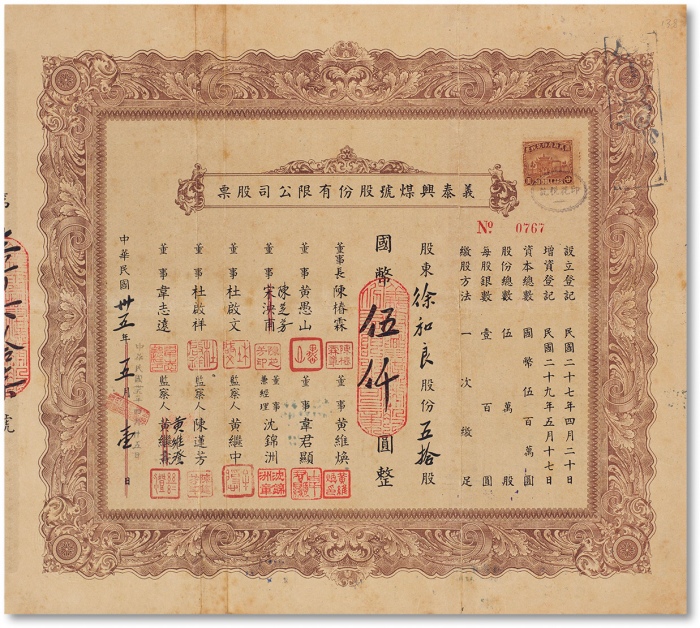 義泰興煤號股份有限公司股票
№ 0767
設立登記 民國二十七年四月二十日
增資登記 民國二十九年五月十七日
資本總數 國幣伍百萬圓
股份總數 伍萬股
每股銀數 壹百圓
繳股方法 一次繳足
股東徐和良股份五拾股
國幣伍仟圓整
董事長 陳椿霖
董事 黃維煥
董事 黃愚山
董事 韋君顯
董事 宋泱甫
陳芝芳
董事兼經理 沈錦洲
董事 杜啟文
監察人 黃繼中
董事 杜啟祥
監察人 陳蓮芳
董事 韋志遠
監察人 黃繼霖
黃維發
中華民國卅五年五月壹日
號